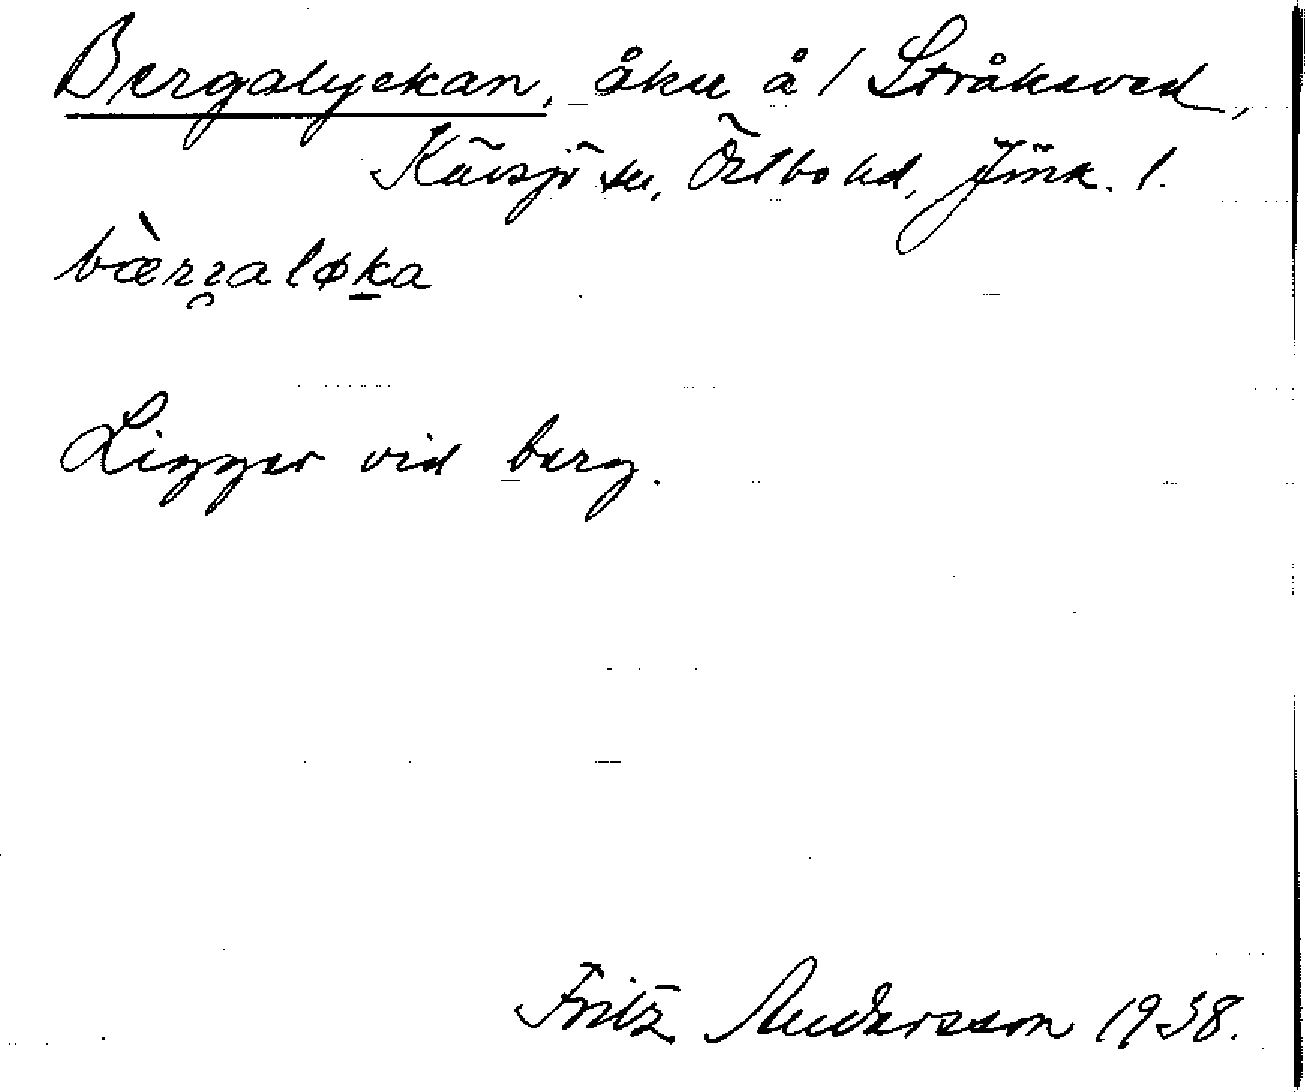 Bergalyckan, åker å / Stråkeved,
Kävsjö sn, Östbo hd, Jönk. l.
bærraløka
Ligger vid berg.
Fritz Andersson 1938.